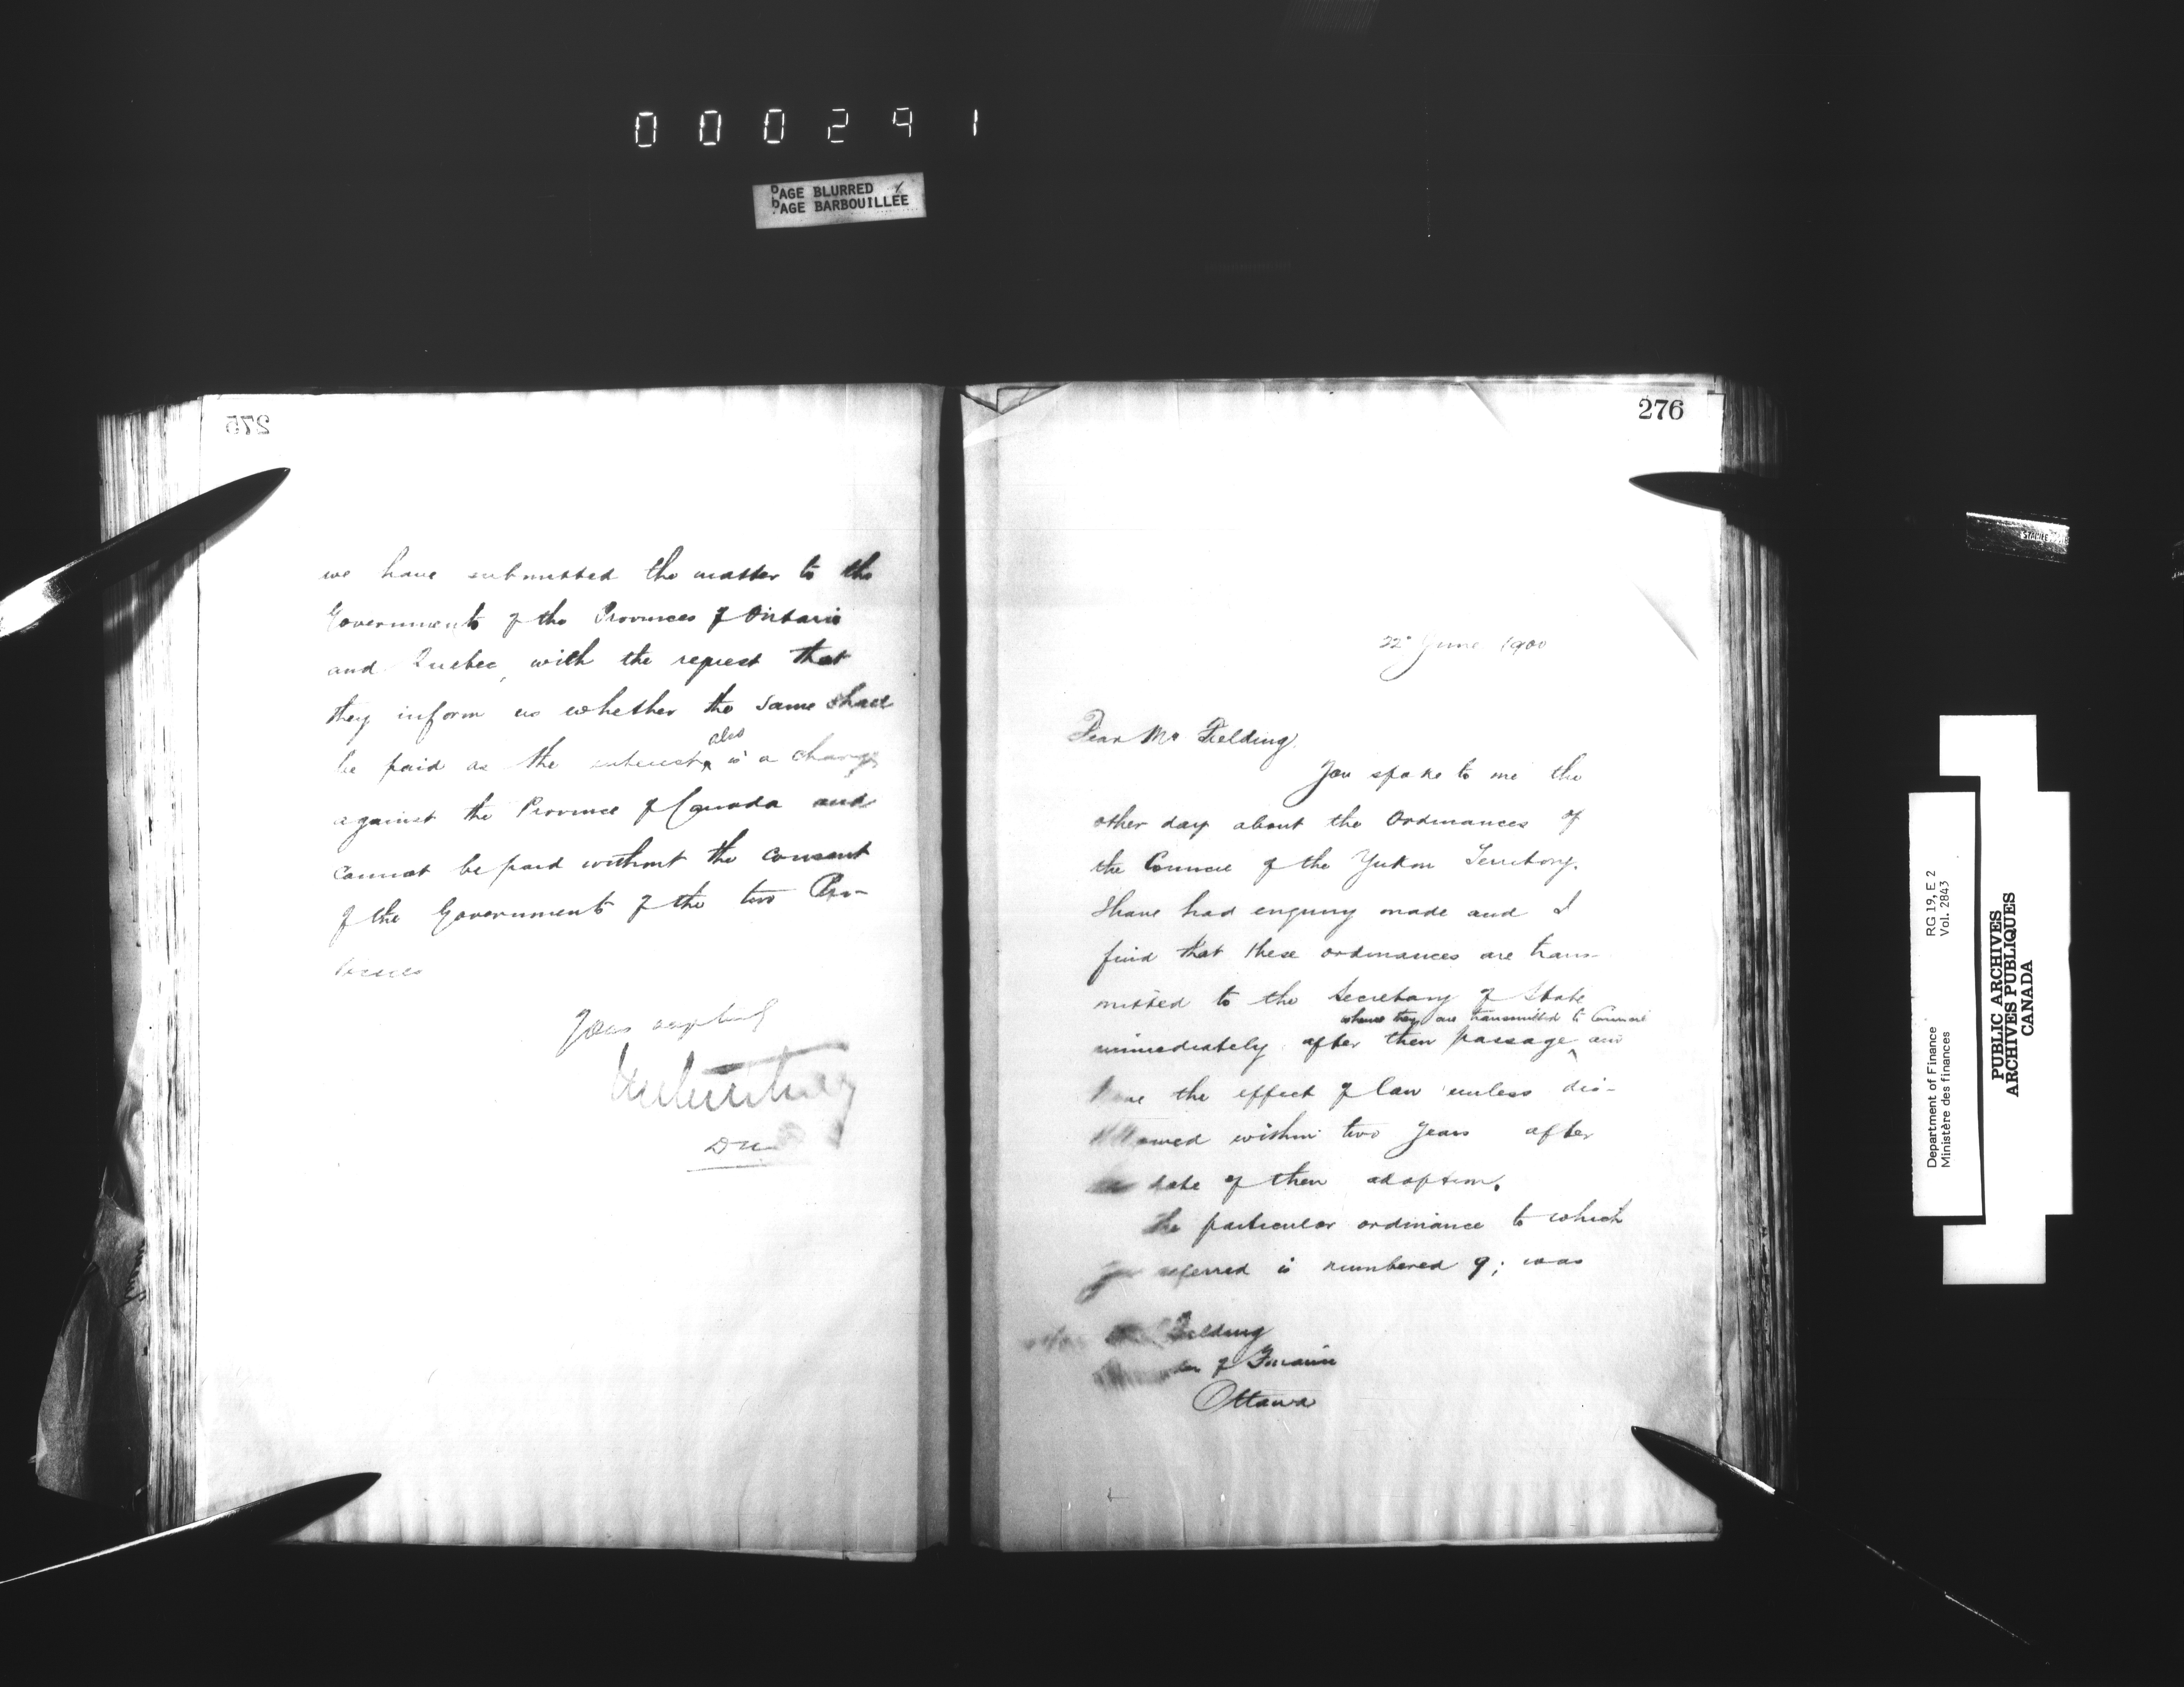 000291
PAGE BLURRED
PAGE BARBOUILLÉE
275
we have submitted the matter to the
Governments of the Provinces of Ontario
and Quebec, with the request that
they inform us whether the same shall
be paid as the interest also is a charge
against the Province of Canada and
cannot be paid without the consent
of the Governments of the two Pro-
vinces
Yours
D M
276
22 June 1900
Dear Mr Fielding,
You spoke to me the
other day about the Ordinances of
the Council of the Yukon Territory.
I have had enquiry made and I
find that these ordinances are trans-
mitted to the Secretary of State
where they are transmitted to Council
immediately after their passage and
have the effect of law unless dis-
allowed within two years after
the date of their adoption.
The particular ordinance to which
you referred is numbered 9; was
Fielding
of Finance
Ottawa
STAPLE
Department of Finance
Ministère des finances
RG 19, E 2
Vol. 2843
PUBLIC ARCHIVES
ARCHIVES PUBLIQUES
CANADA